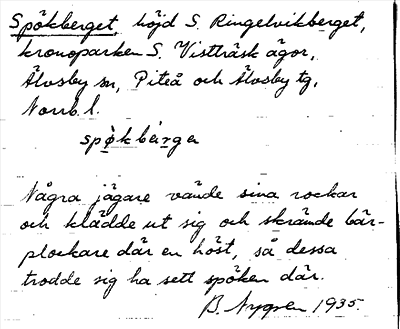 Spökberget, höjd S. Ringelvikberget,
kronoparken S. Vistträsk ägor,
Älvsby sn, Piteå och Älvsby tg,
Norrb. l.
spö̀kbèrge
Några jägare vände sina rockar
och klädde ut sig och skrämde bär-
plockare där en höst, så dessa
trodde sig ha sett spöken där.
B. Nygren 1935.